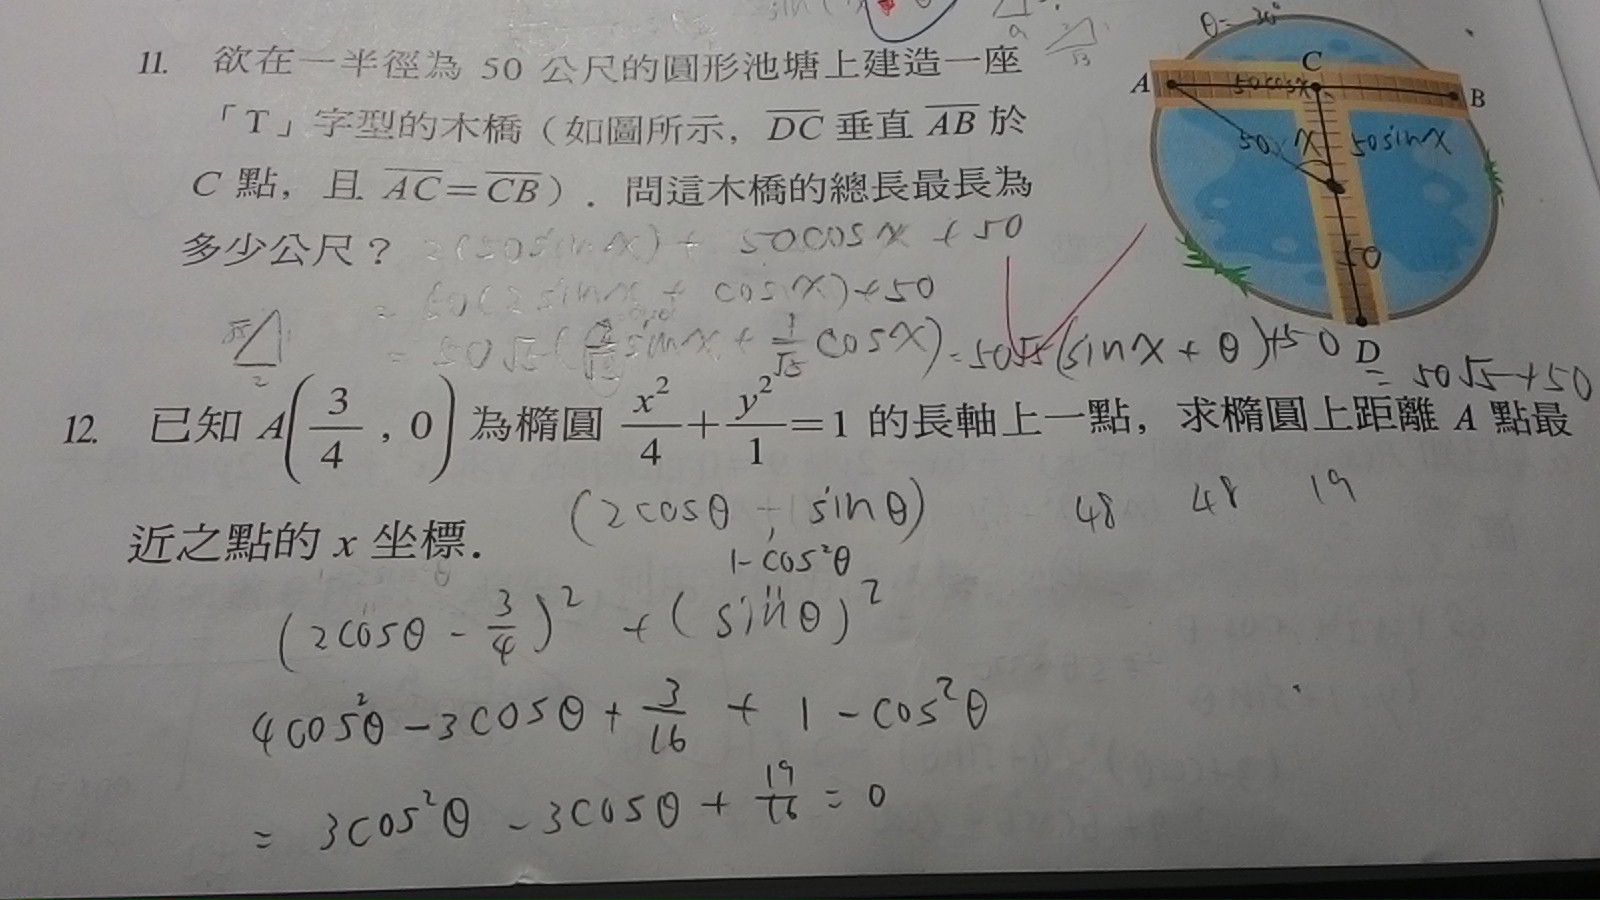 11. 欲在一半徑為 50 公尺的圓形池塘上建造一座
「T」字型的木橋（如圖所示，DC 垂直 AB 於
C 點，且 AC=CB）．問這木橋的總長最長為
多少公尺？
2(50sinx) + 50cosx + 50
= 50(2sinx + cosx)+50
= 50√5(2/√5 sinx + 1/√5 cosx) = 50√5(sinx + θ)+50
= 50√5+50
√5 1
2
A
C
B
D
50
x
50sinx
50
12. 已知 A(3/4, 0) 為橢圓 x²/4 + y²/1 = 1 的長軸上一點，求橢圓上距離 A 點最
近之點的 x 坐標．
(2cosθ, sinθ)
48 48 19
1-cos²θ
(2cosθ - 3/4)² + (sinθ)²
4cos²θ - 3cosθ + 3/16 + 1 - cos²θ
= 3cos²θ - 3cosθ + 19/16 = 0